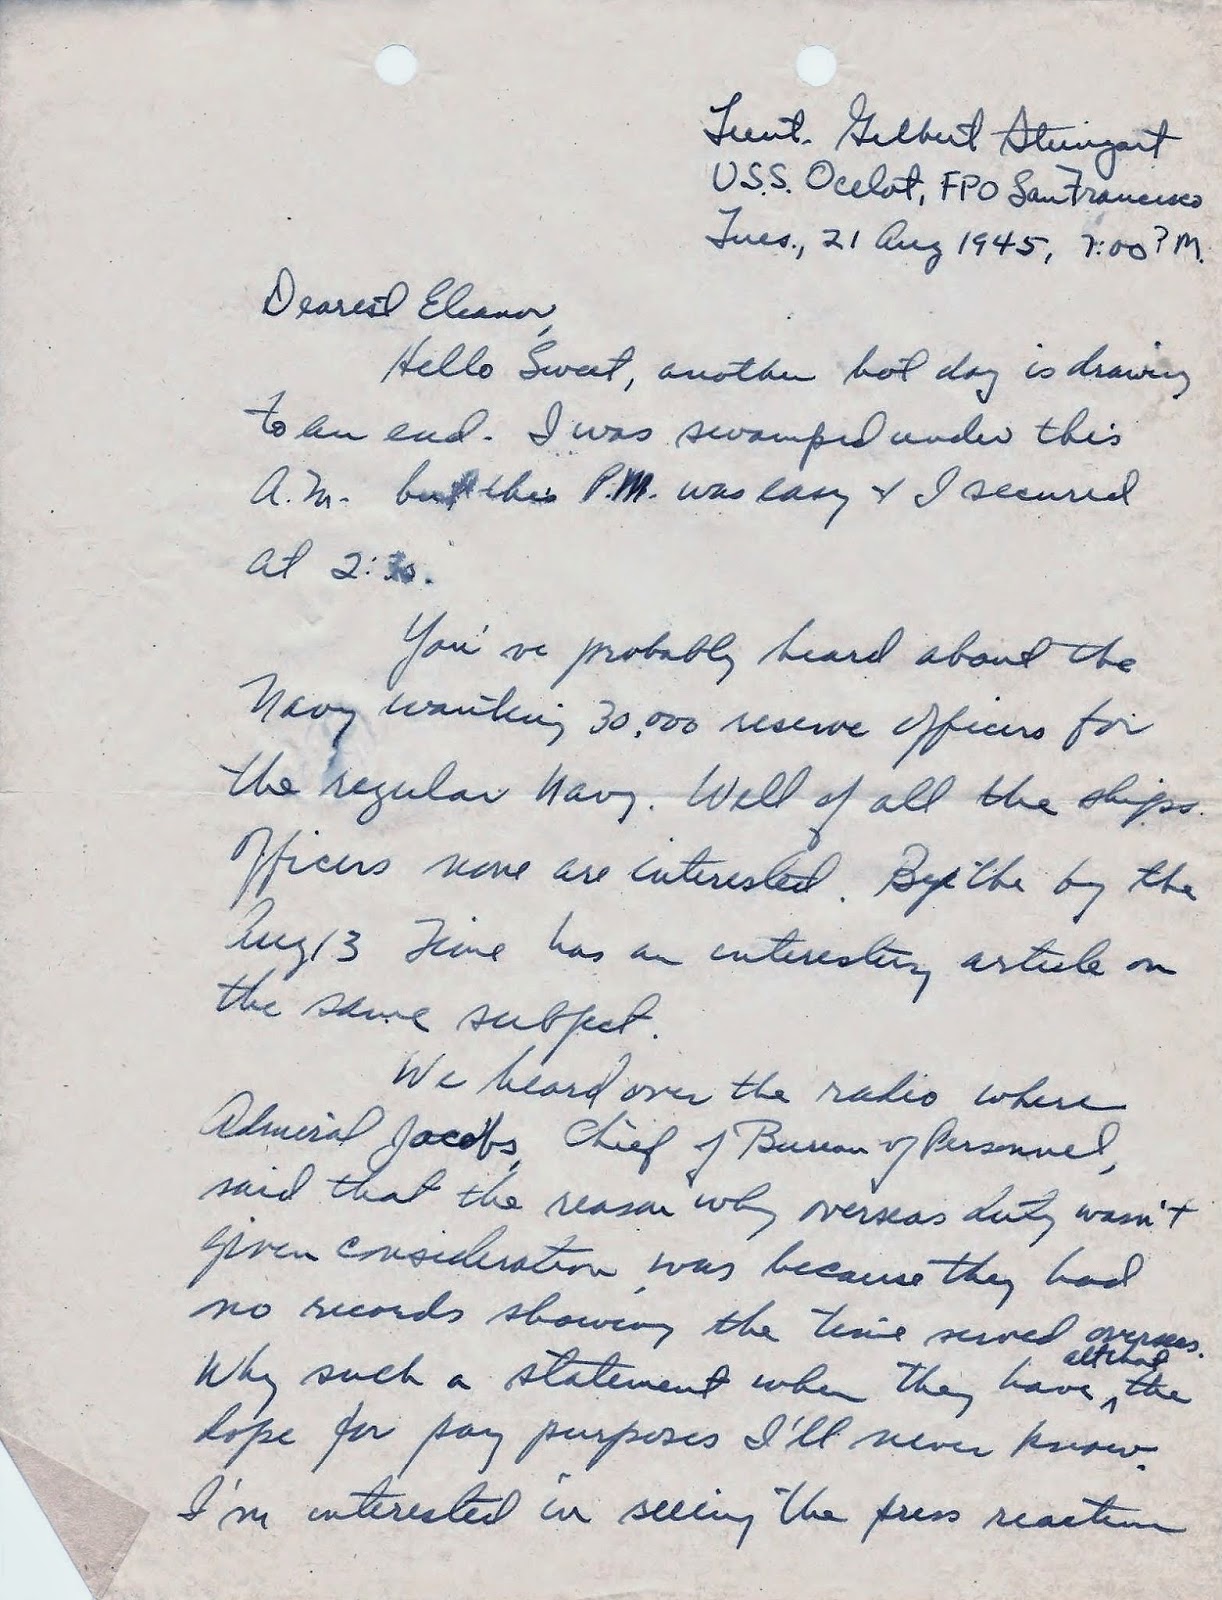 Lieut. Gilbert Steingart
U.S.S. Ocelot, FPO San Francisco
Tues., 21 Aug 1945, 7:00 P.M.
Dearest Eleanor,
Hello Sweet, another hot day is drawing
to an end. I was swamped under this
A.M. but this P.M. was easy & I secured
at 2:30.
You've probably heard about the
Navy wanting 30,000 reserve officers for
the regular Navy. Well of all the ships
officers none are interested. By the by the
Aug 13 Time has an interesting article on
the same subject.
We heard over the radio where
Admiral Jacobs, Chief of Bureau of Personnel,
said that the reason why overseas duty wasn't
given consideration was because they had
no records showing the time served overseas.
Why such a statement when they have all that the
dope for pay purposes I'll never know.
I'm interested in seeing the press reaction